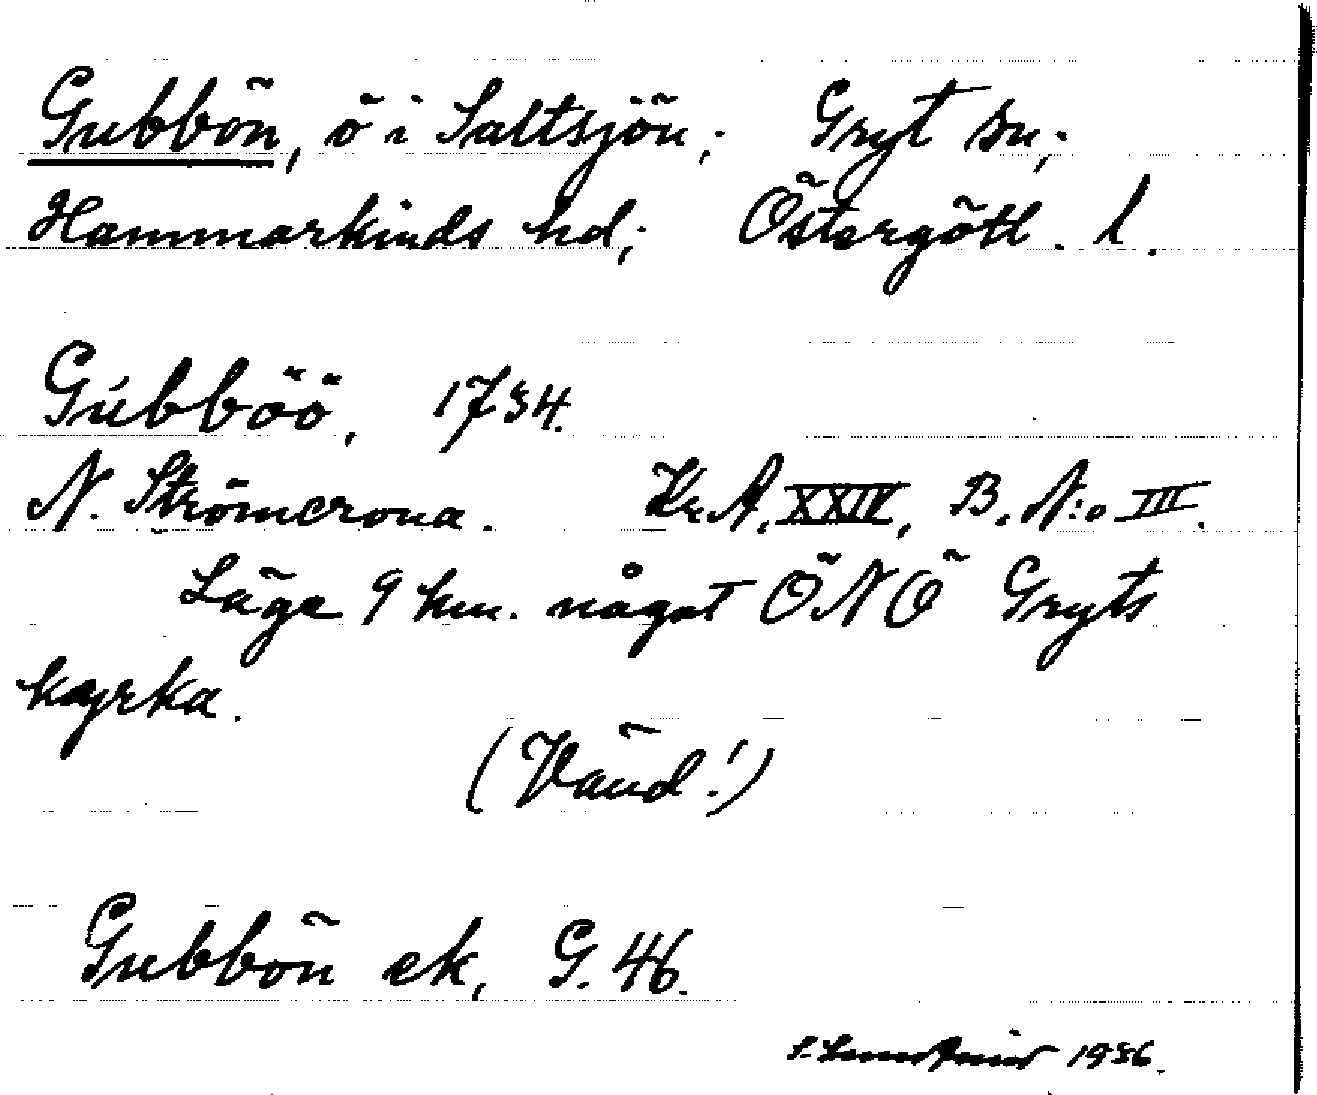 Gubbön, ö i Saltsjön; Gryt sn;
Hammarkinds hd; Östergötl. l.
Gubböö, 1734.
N. Strömcrona. Kr.A. XXIV, B. N:o III.
Läge 9 km. något ÖNÖ Gryts
kyrka.
(Vänd!)
Gubbön ek, G. 46.
1936.